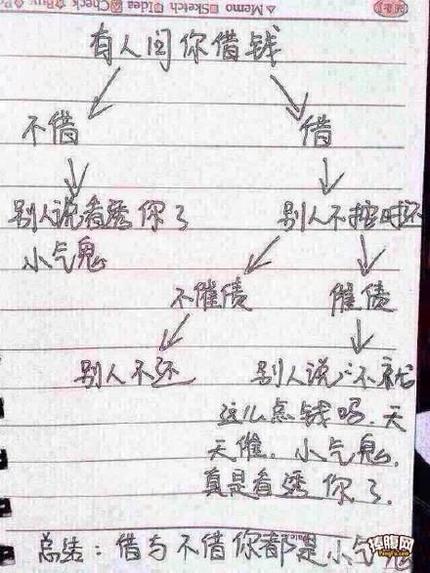 Memo Sketch Idea Check Buy
有人问你借钱
不借 借
别人说看透你了 别人不按时还
小气鬼
不催债 催债
别人不还 别人说:不就
这么点钱吗.天
天催。小气鬼.
真是看透你了.
总结:借与不借你都是小气鬼
捧腹网